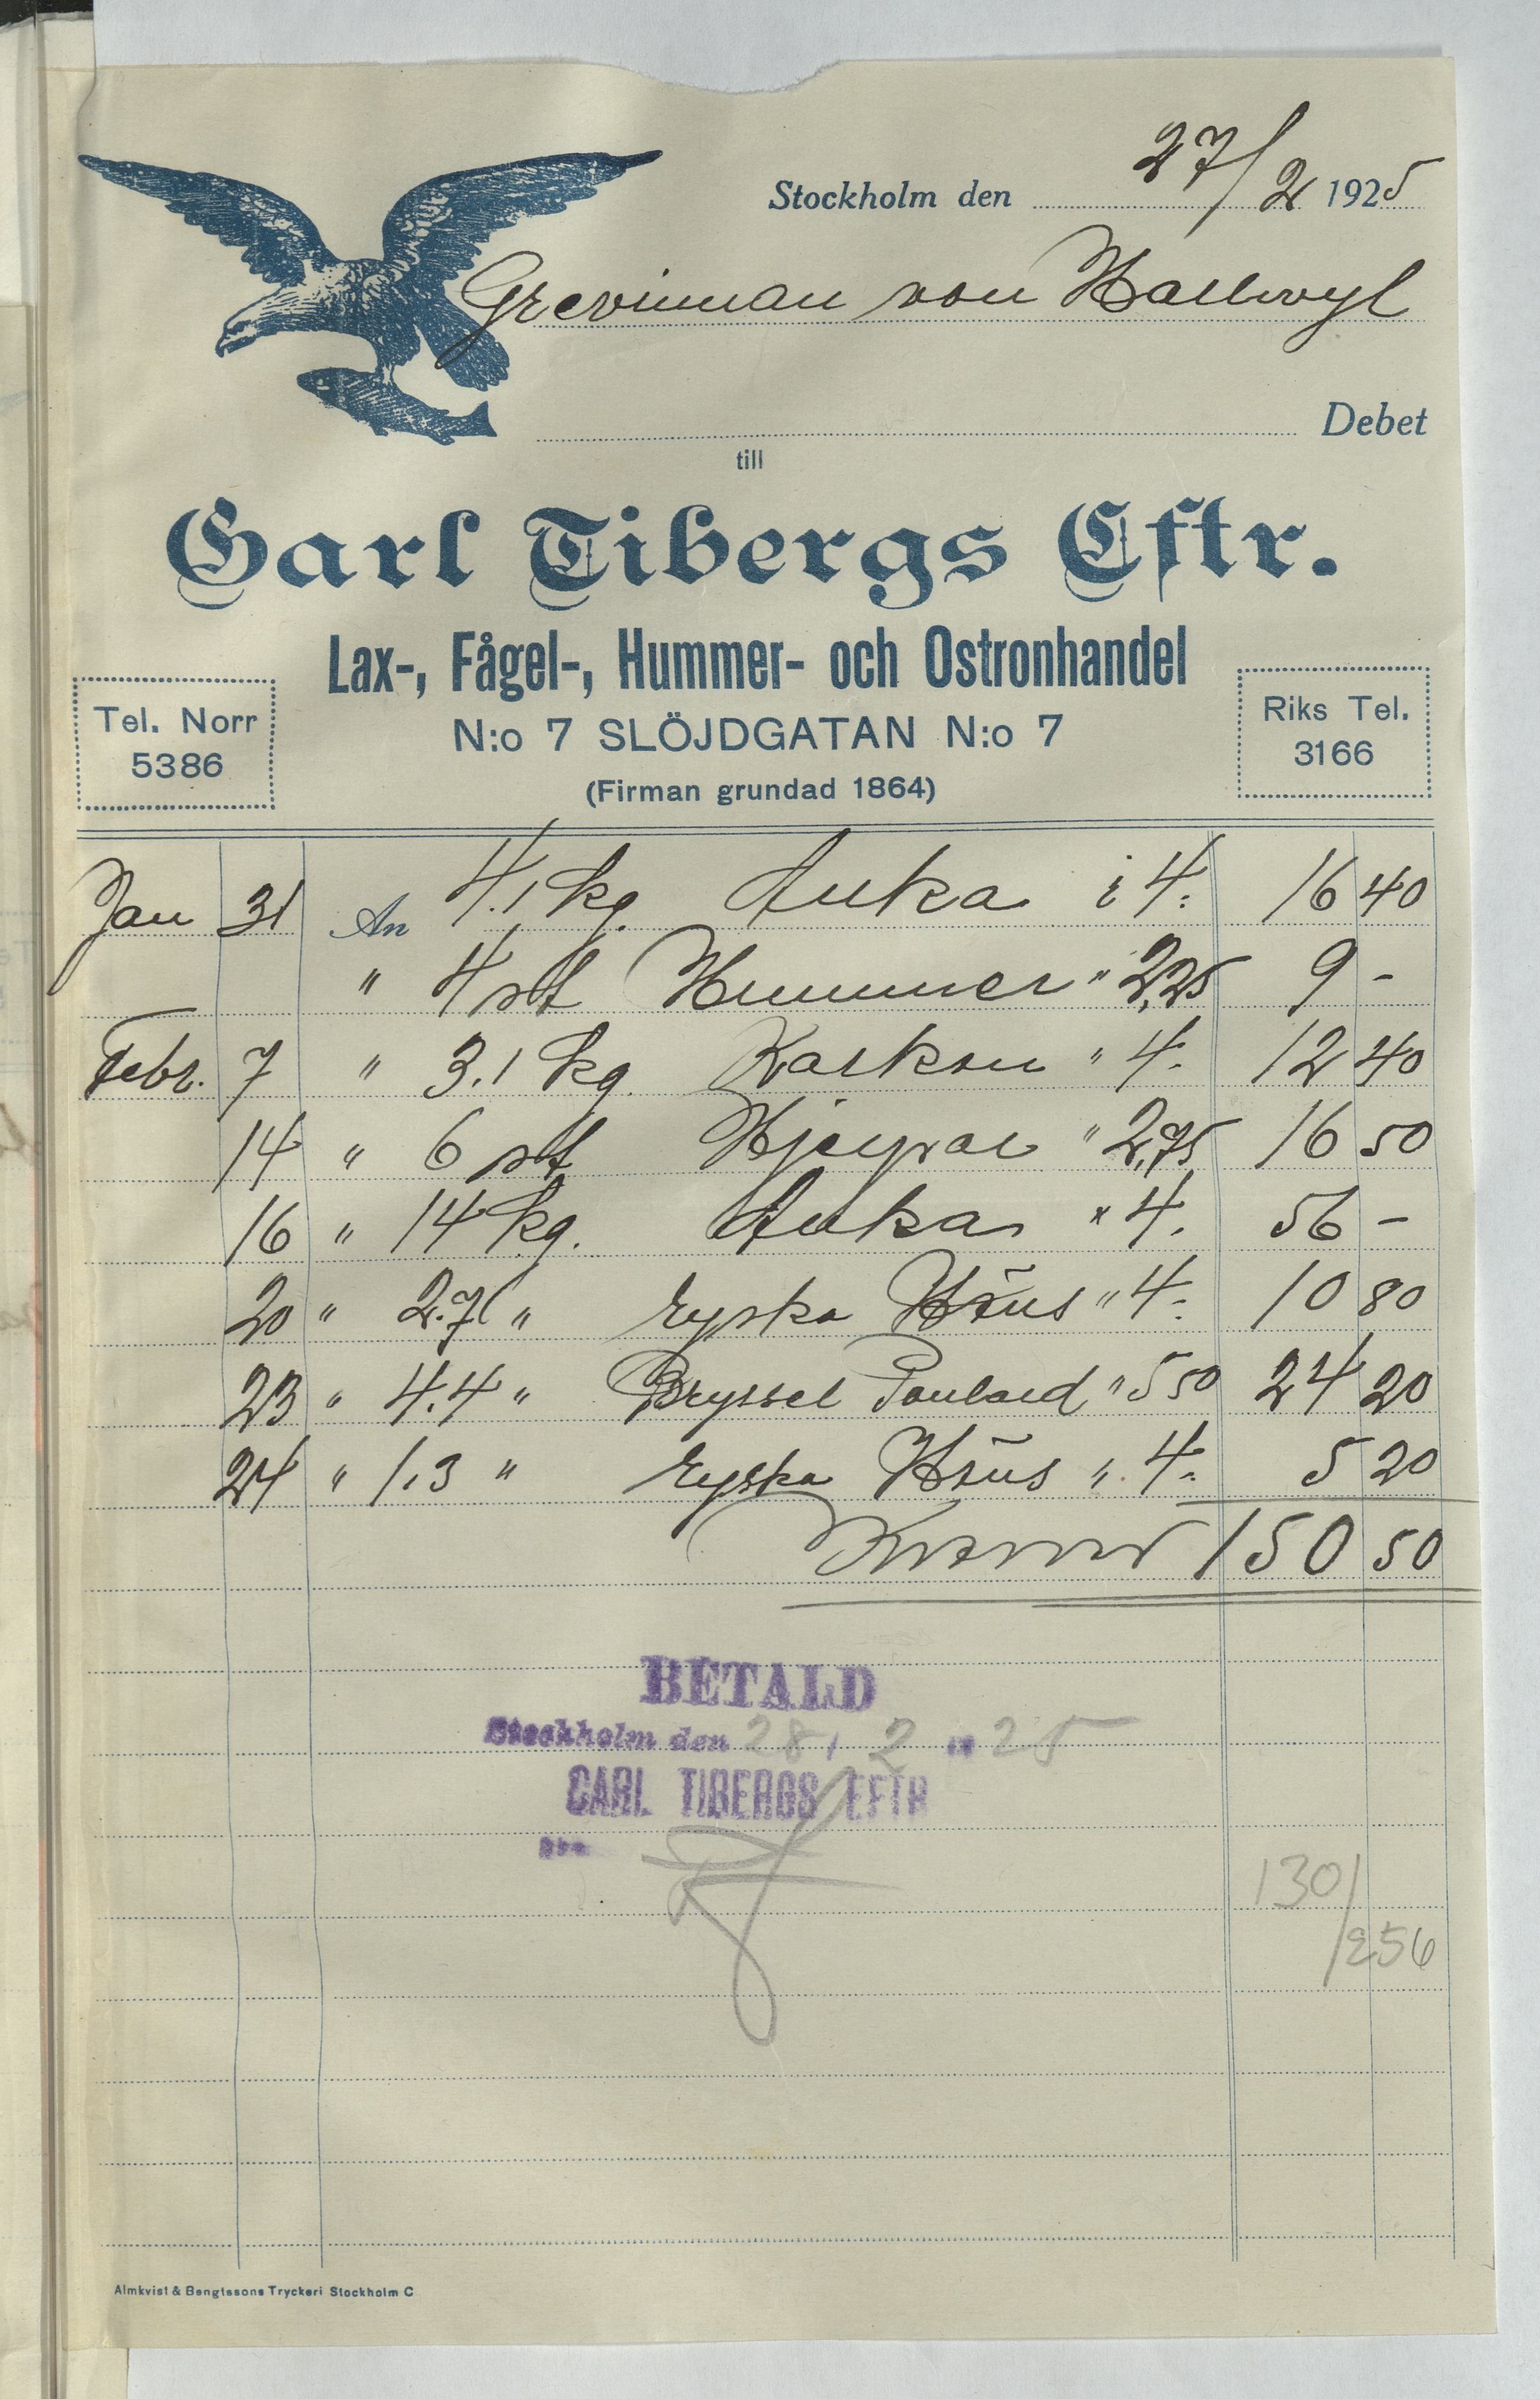 Stockholm den 27/2 1925
Grevinnan von Hallwyl
Debet
till
Carl Tibergs Eftr.
Lax-, Fågel-, Hummer- och Ostronhandel
Tel. Norr
5386
N:o 7 SLÖJDGATAN N:o 7
Riks Tel.
3166
(Firman grundad 1864)
Jan 31 An 4.1 kg. Anka à 4.- 16 40
" 4 st Hummer " 2,25 9 -
Febr. 7 " 3.1 kg. Kalkon " 4.- 12 40
14 " 6 st Hjerpar " 2,75 16 50
16 " 14 kg. Anka " 4. 56 -
20 " 2.7 " ryska Höns " 4.- 10 80
23 " 4.4 " Bryssel Poulard " 5 50 24 20
24 " 1.3 " ryska Höns " 4.- 5 20
Kronor 150 50
BETALD
Stockholm den 28/2 19 25
CARL TIBERGS EFTR
130/256
Almkvist & Bengtssons Tryckeri Stockholm C